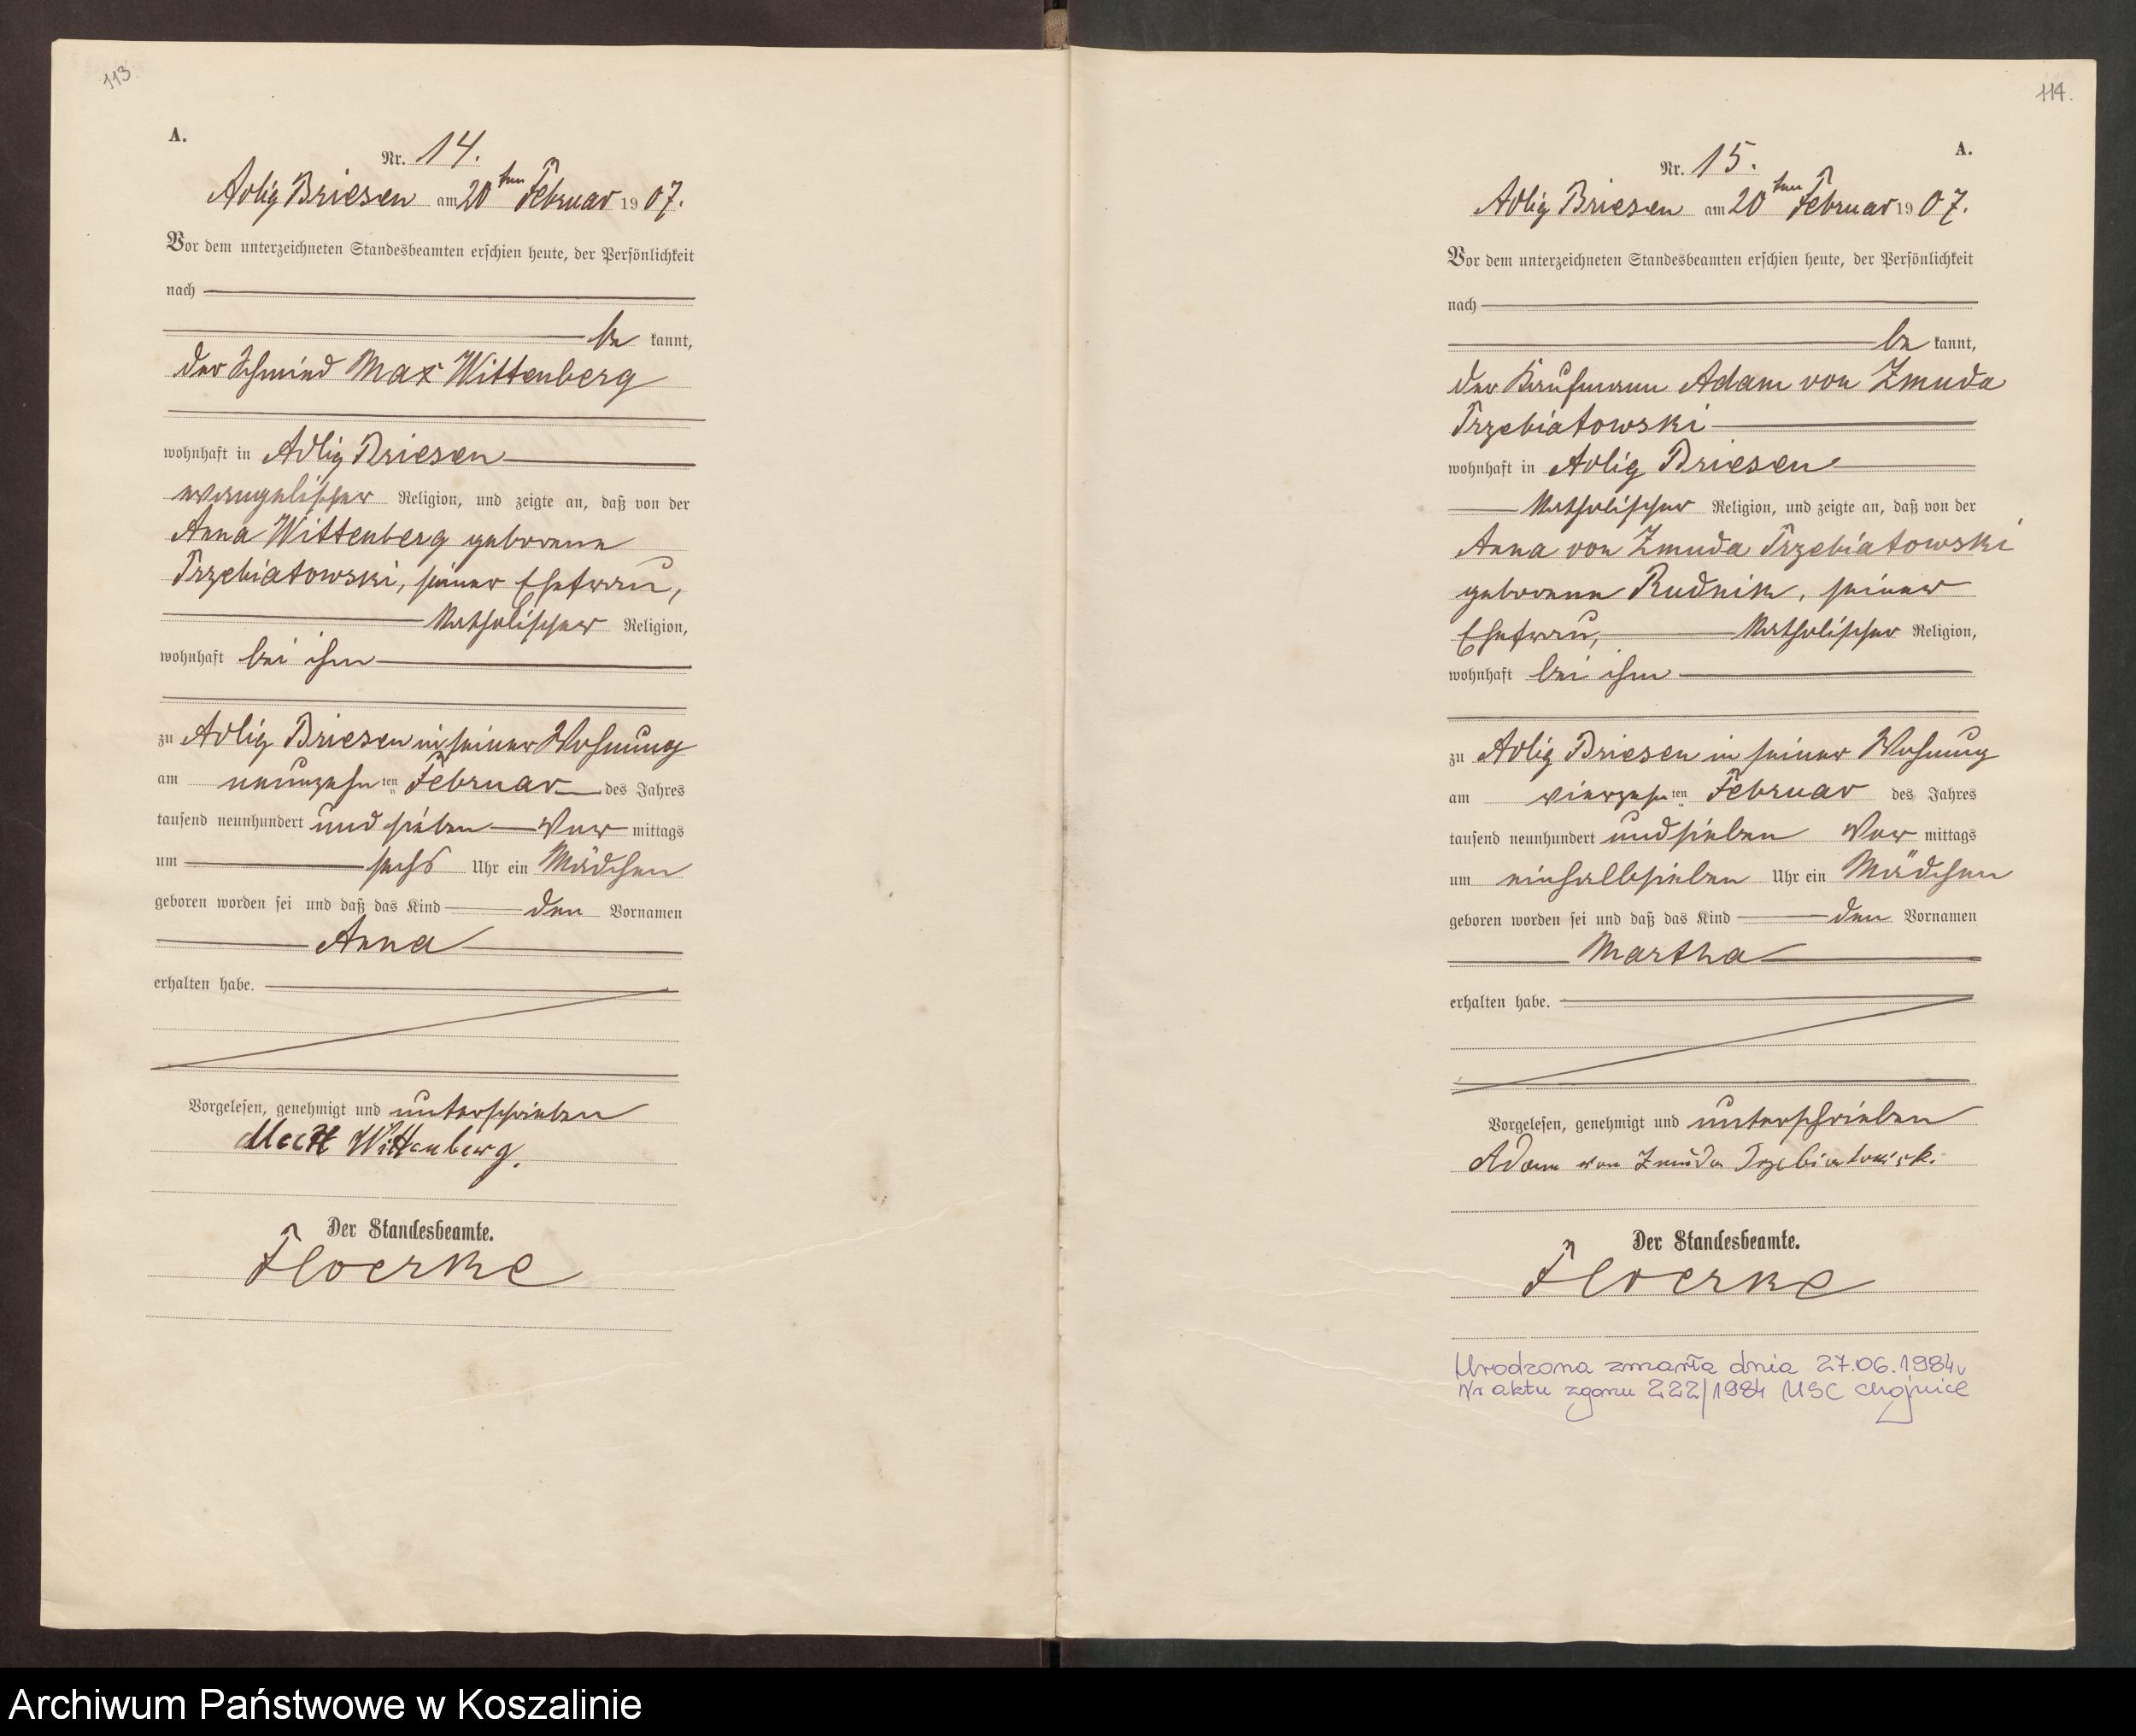 113
A.
Nr. 14.
Adlig Briesen am 20ten Februar 1907.
Vor dem unterzeichneten Standesbeamten erschien heute, der Persönlichkeit
nach
be kannt,
der Schmied Max Wittenberg
wohnhaft in Adlig Briesen
evangelischer Religion, und zeigte an, daß von der
Anna Wittenberg geborene
Trzebiatowski, seiner Ehefrau,
katholischer Religion,
wohnhaft bei ihm
zu Adlig Briesen in seiner Wohnung
am neunzehnten Februar des Jahres
tausend neunhundert und sieben Vor mittags
um sechs Uhr ein Mädchen
geboren worden sei und daß das Kind den Vornamen
Anna
erhalten habe.
Vorgelesen, genehmigt und unterschrieben
Max Wittenberg.
Der Standesbeamte.
Floerke
114.
A.
Nr. 15.
Adlig Briesen am 20ten Februar 1907.
Vor dem unterzeichneten Standesbeamten erschien heute, der Persönlichkeit
nach
be kannt,
der Kaufmann Adam von Zmuda
Trzebiatowski
wohnhaft in Adlig Briesen
katholischer Religion, und zeigte an, daß von der
Anna von Zmuda Trzebiatowski
geborene Rudnik, seiner
Ehefrau, katholischer Religion,
wohnhaft bei ihm
zu Adlig Briesen in seiner Wohnung
am vierzehnten Februar des Jahres
tausend neunhundert und sieben Vor mittags
um einhalbsieben Uhr ein Mädchen
geboren worden sei und daß das Kind den Vornamen
Martha
erhalten habe.
Vorgelesen, genehmigt und unterschrieben
Adam von Zmuda Trzebiatowsk.
Der Standesbeamte.
Floerke
Urodzona zmarła dnia 27.06.1984r
Nr aktu zgonu 222/1984 USC Chojnice
Archiwum Państwowe w Koszalinie